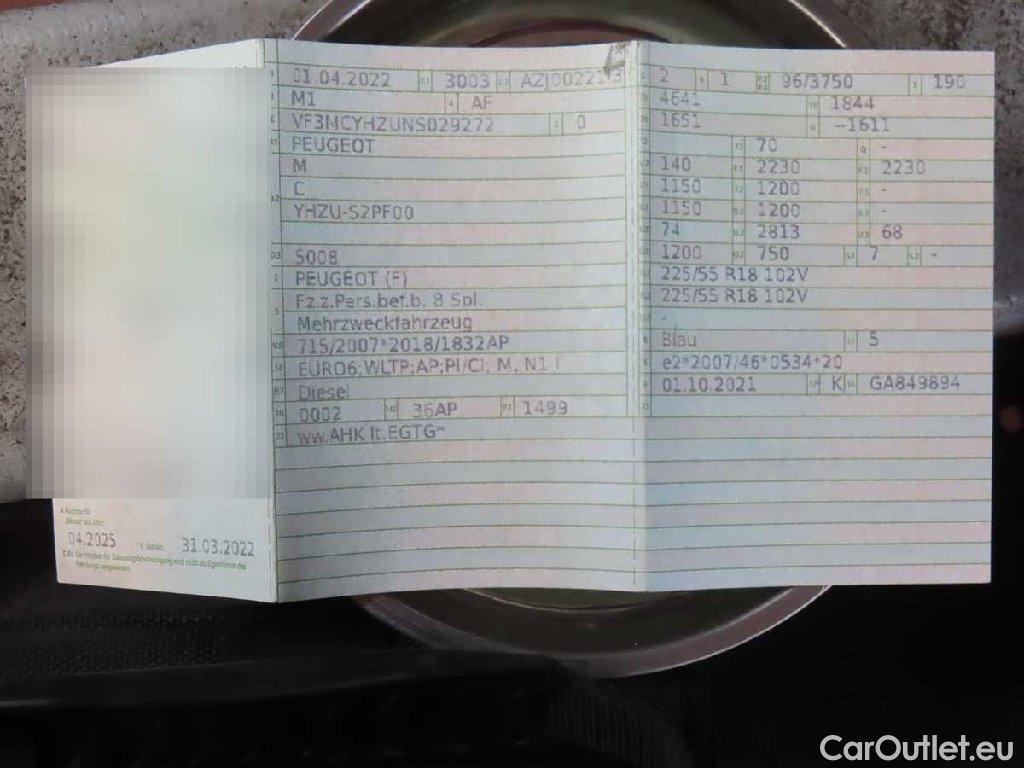 01.04.2022 3003 AZJ002213
M1 AF
VF3MCYHZUNS029272 0
PEUGEOT
M
C
YHZU-S2PF00
5008
PEUGEOT (F)
Fz.z.Pers.bef.b. 8 Spl.
Mehrzweckfahrzeug
715/2007*2018/1832AP
EURO6;WLTP;AP;PI/CI; M, N1 I
Diesel
0002 36AP 1499
ww.AHK lt.EGTG*
2 1 96/3750 190
4641 1844
1651 --1611
- 70 -
140 2230 2230
1150 1200 -
1150 1200 -
74 2813 68
1200 750 7 -
225/55 R18 102V
225/55 R18 102V
-
Blau 5
e2*2007/46*0534*20
01.10.2021 K GA849894
04.2025 31.03.2022
CarOutlet.eu